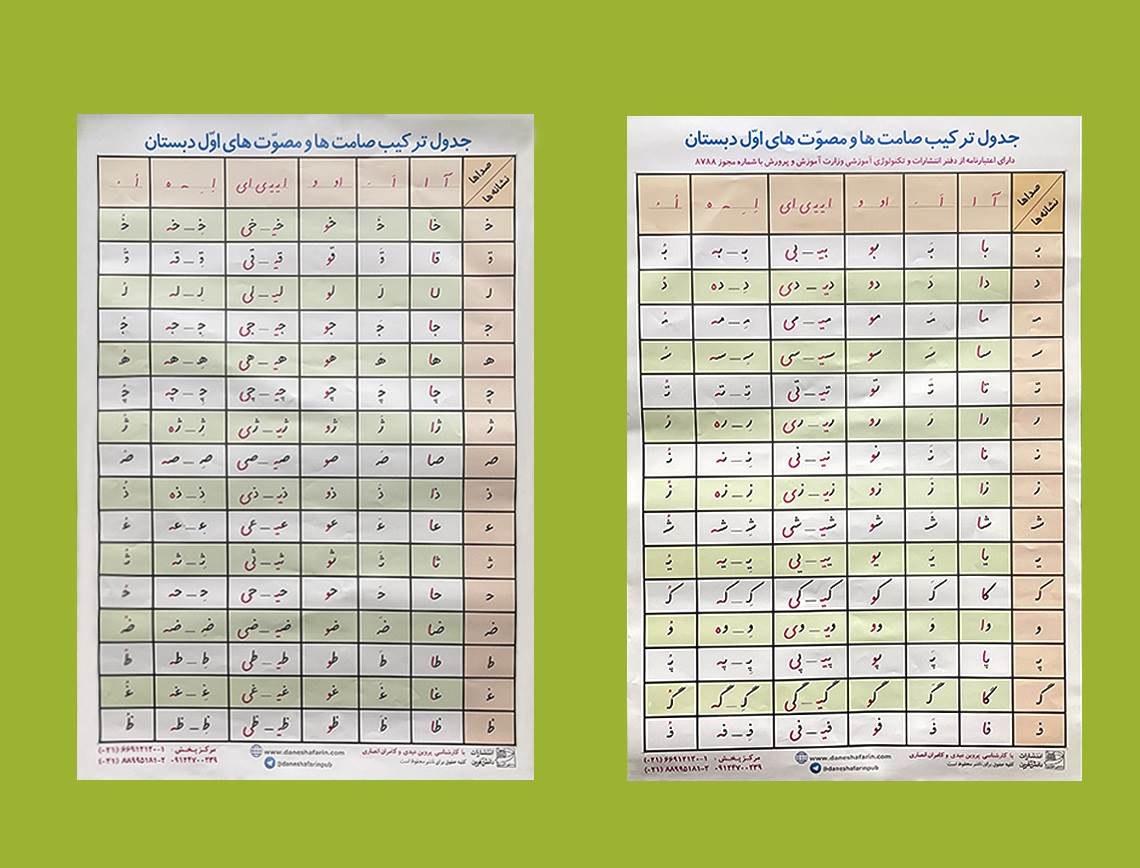 جدول ترکیب صامت ها و مصوّت های اوّل دبستان
دارای اعتبارنامه از دفتر انتشارات و تکنولوژی آموزشی وزارت آموزش و پرورش با شماره مجوز ۸۷۸۸
صداها نشانه‌ها آ ا اَ ـَ او و ایـ یـ ی ای اِ ـِ ـه ه اُ ـُ
بـ با بَـ بو بیـ ـ بی بِـ ـ به بُـ
د دا دَ دو دیـ ـ دی دِ ـ ده دُ
مـ ما مَـ مو میـ ـ می مِـ ـ مه مُـ
سـ سا سَـ سو سیـ ـ سی سِـ ـ سه سُـ
تـ تا تَـ تو تیـ ـ تی تِـ ـ ته تُـ
ر را رَ رو ریـ ـ ری رِ ـ ره رُ
نـ نا نَـ نو نیـ ـ نی نِـ ـ نه نُـ
ز زا زَ زو زیـ ـ زی زِ ـ زه زُ
شـ شا شَـ شو شیـ ـ شی شِـ ـ شه شُـ
یـ یا یَـ یو ییـ ـ یی یِـ ـ یه یُـ
کـ کا کَـ کو کیـ ـ کی کِـ ـ که کُـ
و وا وَ وو ویـ ـ وی وِ ـ وه وُ
پـ پا پَـ پو پیـ ـ پی پِـ ـ په پُـ
گـ گا گَـ گو گیـ ـ گی گِـ ـ گه گُـ
فـ فا فَـ فو فیـ ـ فی فِـ ـ فه فُـ
انتشارات با کارشناسی پروین عبدی و کامران انصاری www.daneshafarin.com مرکز پخش: (۰۲۱) ۶۶۹۱۲۱۲۰-۱
دانش‌آفرین کلیه حقوق برای ناشر محفوظ است @daneshafarinpub ۰۹۱۲۴۷۰۰۲۳۹ (۰۲۱) ۸۸۹۹۵۱۸۱-۲
جدول ترکیب صامت ها و مصوّت های اوّل دبستان
صداها نشانه‌ها آ ا اَ ـَ او و ایـ یـ ی ای اِ ـِ ـه ه اُ ـُ
خـ خا خَـ خو خیـ ـ خی خِـ ـ خه خُـ
قـ قا قَـ قو قیـ ـ قی قِـ ـ قه قُـ
لـ لا لَـ لو لیـ ـ لی لِـ ـ له لُـ
جـ جا جَـ جو جیـ ـ جی جِـ ـ جه جُـ
هـ ها هَـ هو هیـ ـ هی هِـ ـ هه هُـ
چـ چا چَـ چو چیـ ـ چی چِـ ـ چه چُـ
ژ ژا ژَ ژو ژیـ ـ ژی ژِ ـ ژه ژُ
صـ صا صَـ صو صیـ ـ صی صِـ ـ صه صُـ
ذ ذا ذَ ذو ذیـ ـ ذی ذِ ـ ذه ذُ
عـ عا عَـ عو عیـ ـ عی عِـ ـ عه عُـ
ثـ ثا ثَـ ثو ثیـ ـ ثی ثِـ ـ ثه ثُـ
حـ حا حَـ حو حیـ ـ حی حِـ ـ حه حُـ
ضـ ضا ضَـ ضو ضیـ ـ ضی ضِـ ـ ضه ضُـ
ط طا طَ طو طیـ ـ طی طِ ـ طه طُ
غـ غا غَـ غو غیـ ـ غی غِـ ـ غه غُـ
ظ ظا ظَ ظو ظیـ ـ ظی ظِ ـ ظه ظُ
انتشارات با کارشناسی پروین عبدی و کامران انصاری www.daneshafarin.com مرکز پخش: (۰۲۱) ۶۶۹۱۲۱۲۰-۱
دانش‌آفرین کلیه حقوق برای ناشر محفوظ است @daneshafarinpub ۰۹۱۲۴۷۰۰۲۳۹ (۰۲۱) ۸۸۹۹۵۱۸۱-۲